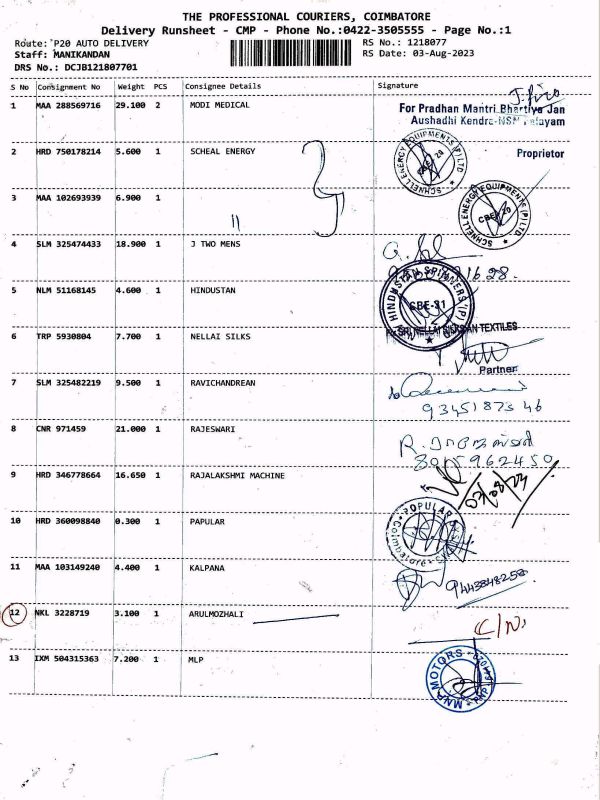 THE PROFESSIONAL COURIERS, COIMBATORE
Delivery Runsheet - CMP - Phone No.:0422-3505555 - Page No.:1
Route: P20 AUTO DELIVERY RS No.: 1218077
Staff: MANIKANDAN RS Date: 03-Aug-2023
DRS No.: DCJB121807701
S No Consignment No Weight PCS Consignee Details Signature
1 MAA 288569716 29.100 2 MODI MEDICAL
For Pradhan Mantri Bhartiya Jan
Aushadhi Kendra-NSN Palayam
2 HRD 750178214 5.600 1 SCHEAL ENERGY Proprietor
SCHNELL ENERGY EQUIPMENTS (P) LTD
CBE 20
3 MAA 102693939 6.900 1
SCHNELL ENERGY EQUIPMENTS (P) LTD
CBE 20
4 SLM 325474433 18.900 1 J TWO MENS
5 NLM 51168145 4.600 1 HINDUSTAN
HINDUSTAN SPINNERS (P) LTD
CBE-31
6 TRP 5930804 7.700 1 NELLAI SILKS
SRI NELLAI TEXTILES
Partner
7 SLM 325482219 9.500 1 RAVICHANDREAN
8 CNR 971459 21.000 1 RAJESWARI
8015962450
9 HRD 346778664 16.650 1 RAJALAKSHMI MACHINE
03/08/23
10 HRD 360098840 0.300 1 PAPULAR
POPULAR
Coimbatore
11 MAA 103149240 4.400 1 KALPANA
9443848258
12 NKL 3228719 3.100 1 ARULMOZHALI
C/N
13 IXM 504315363 7.200 1 MLP
MNP MOTORS